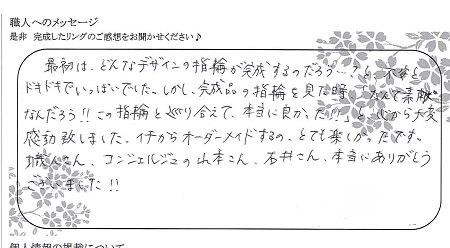 職人へのメッセージ
是非 完成したリングのご感想をお聞かせください♪
最初は、どんなデザインの指輪が完成するのだろう…?と不安と
ドキドキでいっぱいでした。しかし、完成品の指輪を見た時、「なんて素敵
なんだろう!!この指輪とめぐり合えて、本当に良かった!!」と、心から大変
感動致しました。イチからオーダーメイドするの、とても楽しかったです。
職人さん、コンシェルジュの山本さん、石井さん、本当にありがとう
ございました!!
個人情報の掲載について